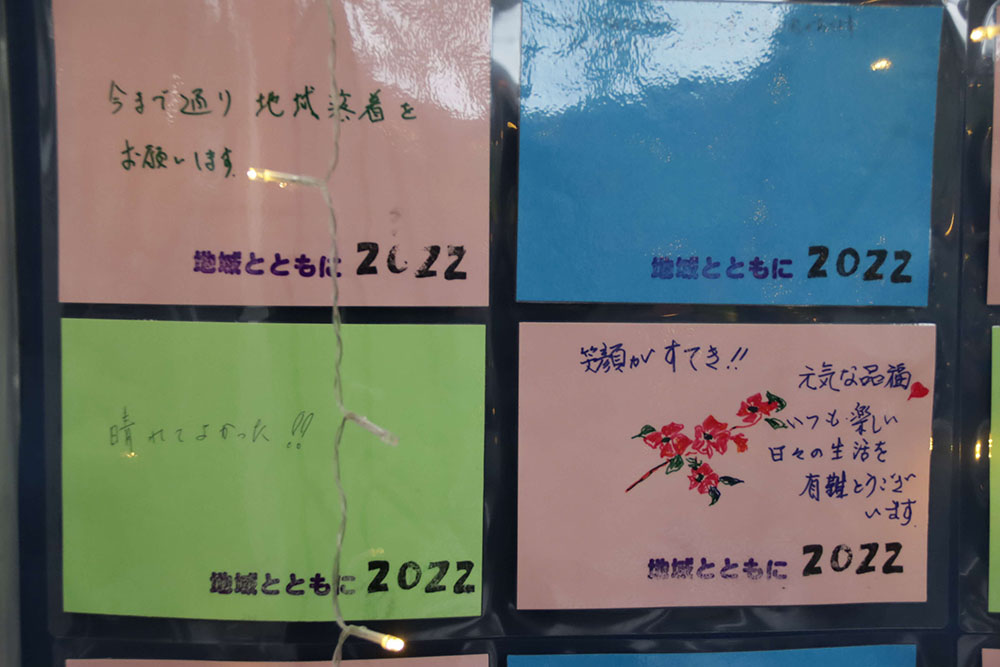 今まで通り地域密着を
お願いします
地域とともに 2022
地域とともに 2022
晴れてよかった!!
地域とともに 2022
笑顔がすてき!!
元気な品福
いつも楽しい
日々の生活を
有難とうござ
います
地域とともに 2022